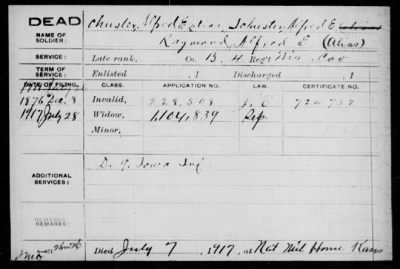 DEAD
NAME OF SOLDIER:
Chuster, Alfred E. alias Schuster, Alfred E.
Raymond, Alfred E. (Alias)
SERVICE:
Late rank, Co. B, 4 Reg't Wis. Cav
TERM OF SERVICE:
Enlisted , 1 Discharged , 1
DATE OF FILING. CLASS. APPLICATION NO. LAW. CERTIFICATE NO.
1876 Dec. 8 Invalid, 228,508
1917 July 28 Widow, 1,104,839
Minor,
ADDITIONAL SERVICES:
D. 9. Iowa Inf
REMARKS:
Died July 7, 1917, at Nat Mil Home Kans